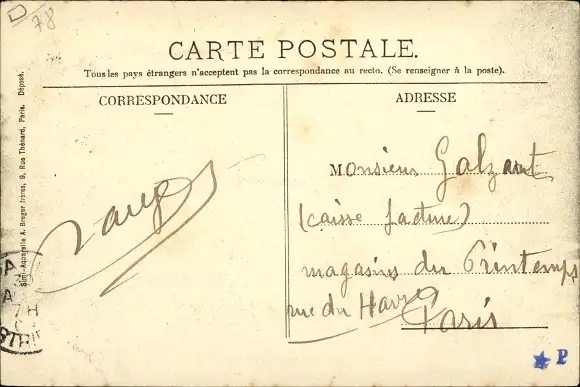 D 78
CARTE POSTALE.
Tous les pays étrangers n'acceptent pas la correspondance au recto. (Se renseigner à la poste).
CORRESPONDANCE
ADRESSE
Monsieur
(caisse facture)
magasins du Printemps
rue du Havre
Paris
Simi-Aquarelle A. Breger frères, 9, Rue Thénard, Paris. Déposé.
P